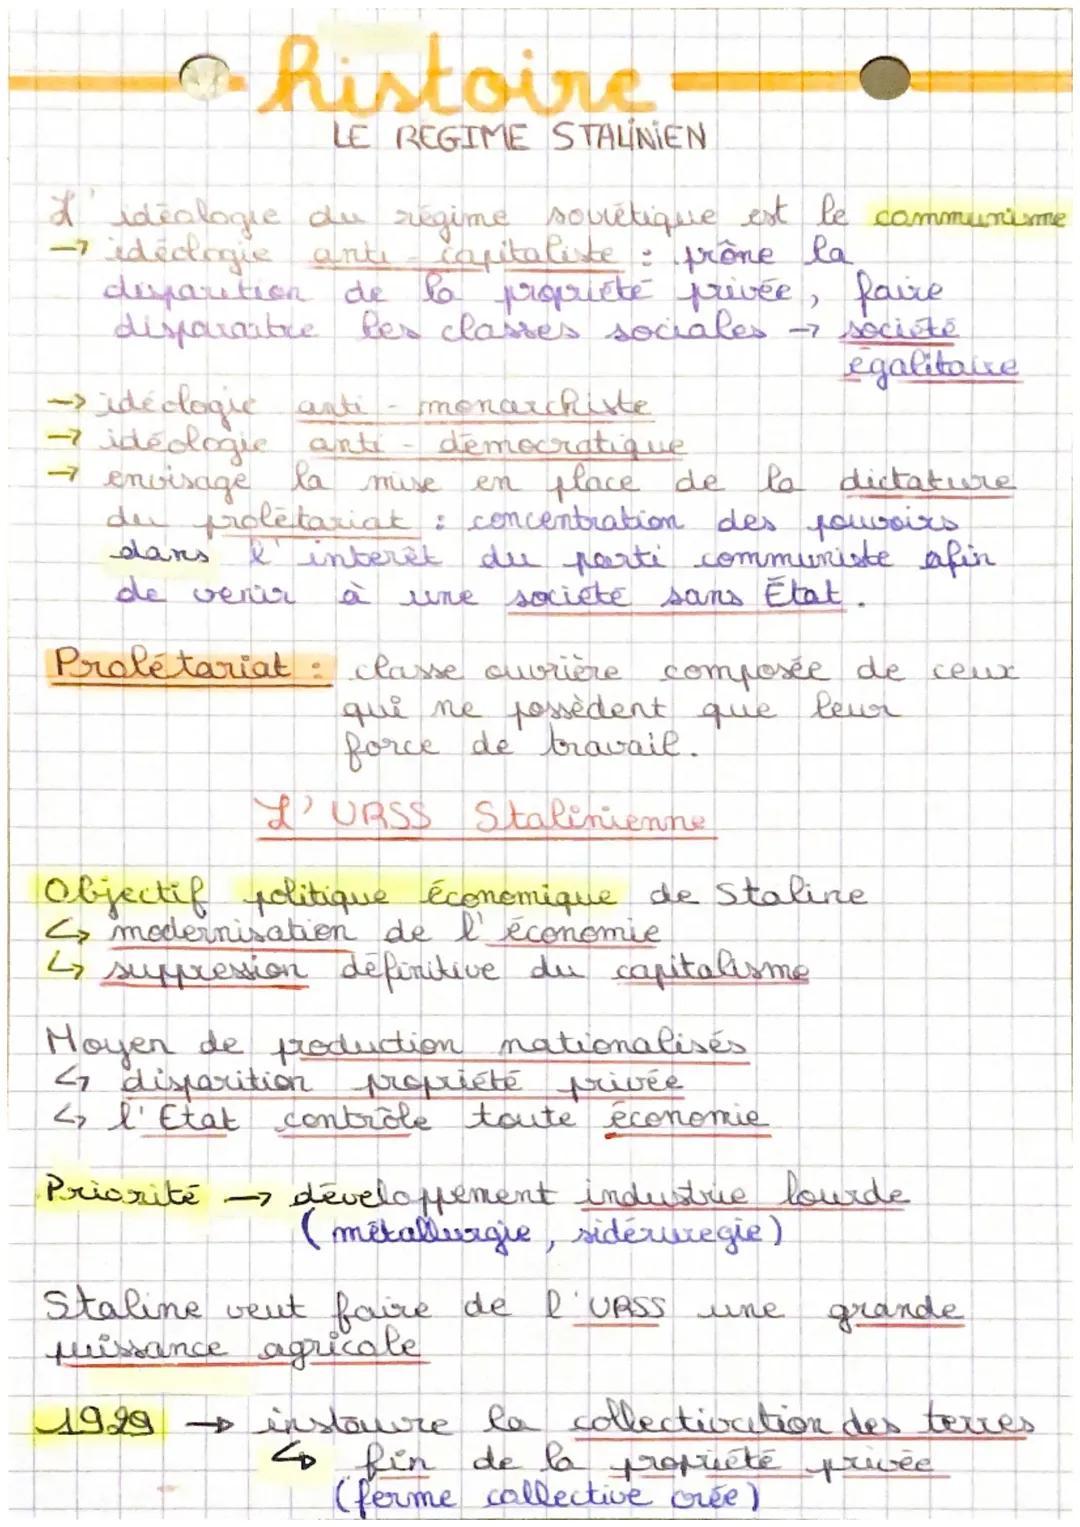 histoire
LE RÉGIME STALINIEN
L'idéologie du régime soviétique est le communisme
→ idéologie anti-capitaliste : prône la
disparition de la propriété privée, faire
disparaitre les classes sociales → société
égalitaire
→ idéologie anti-monarchiste
→ idéologie anti-démocratique
→ envisage la mise en place de la dictature
du prolétariat : concentration des pouvoirs
dans l'interêt du parti communiste afin
de venir à une société sans État.
Prolétariat : classe ouvrière composée de ceux
qui ne possèdent que leur
force de travail.
L'URSS Stalinienne
Objectif politique économique de Staline
↳ modernisation de l'économie
↳ suppression définitive du capitalisme
Moyen de production nationalisés
↳ disparition propriété privée
↳ l'Etat contrôle toute économie
Priorité → développement industrie lourde
(métallurgie, sidéruregie)
Staline veut faire de l'URSS une grande
puissance agricole
1929 → instaure la collectivation des terres
↳ fin de la propriété privée
(ferme collective crée)